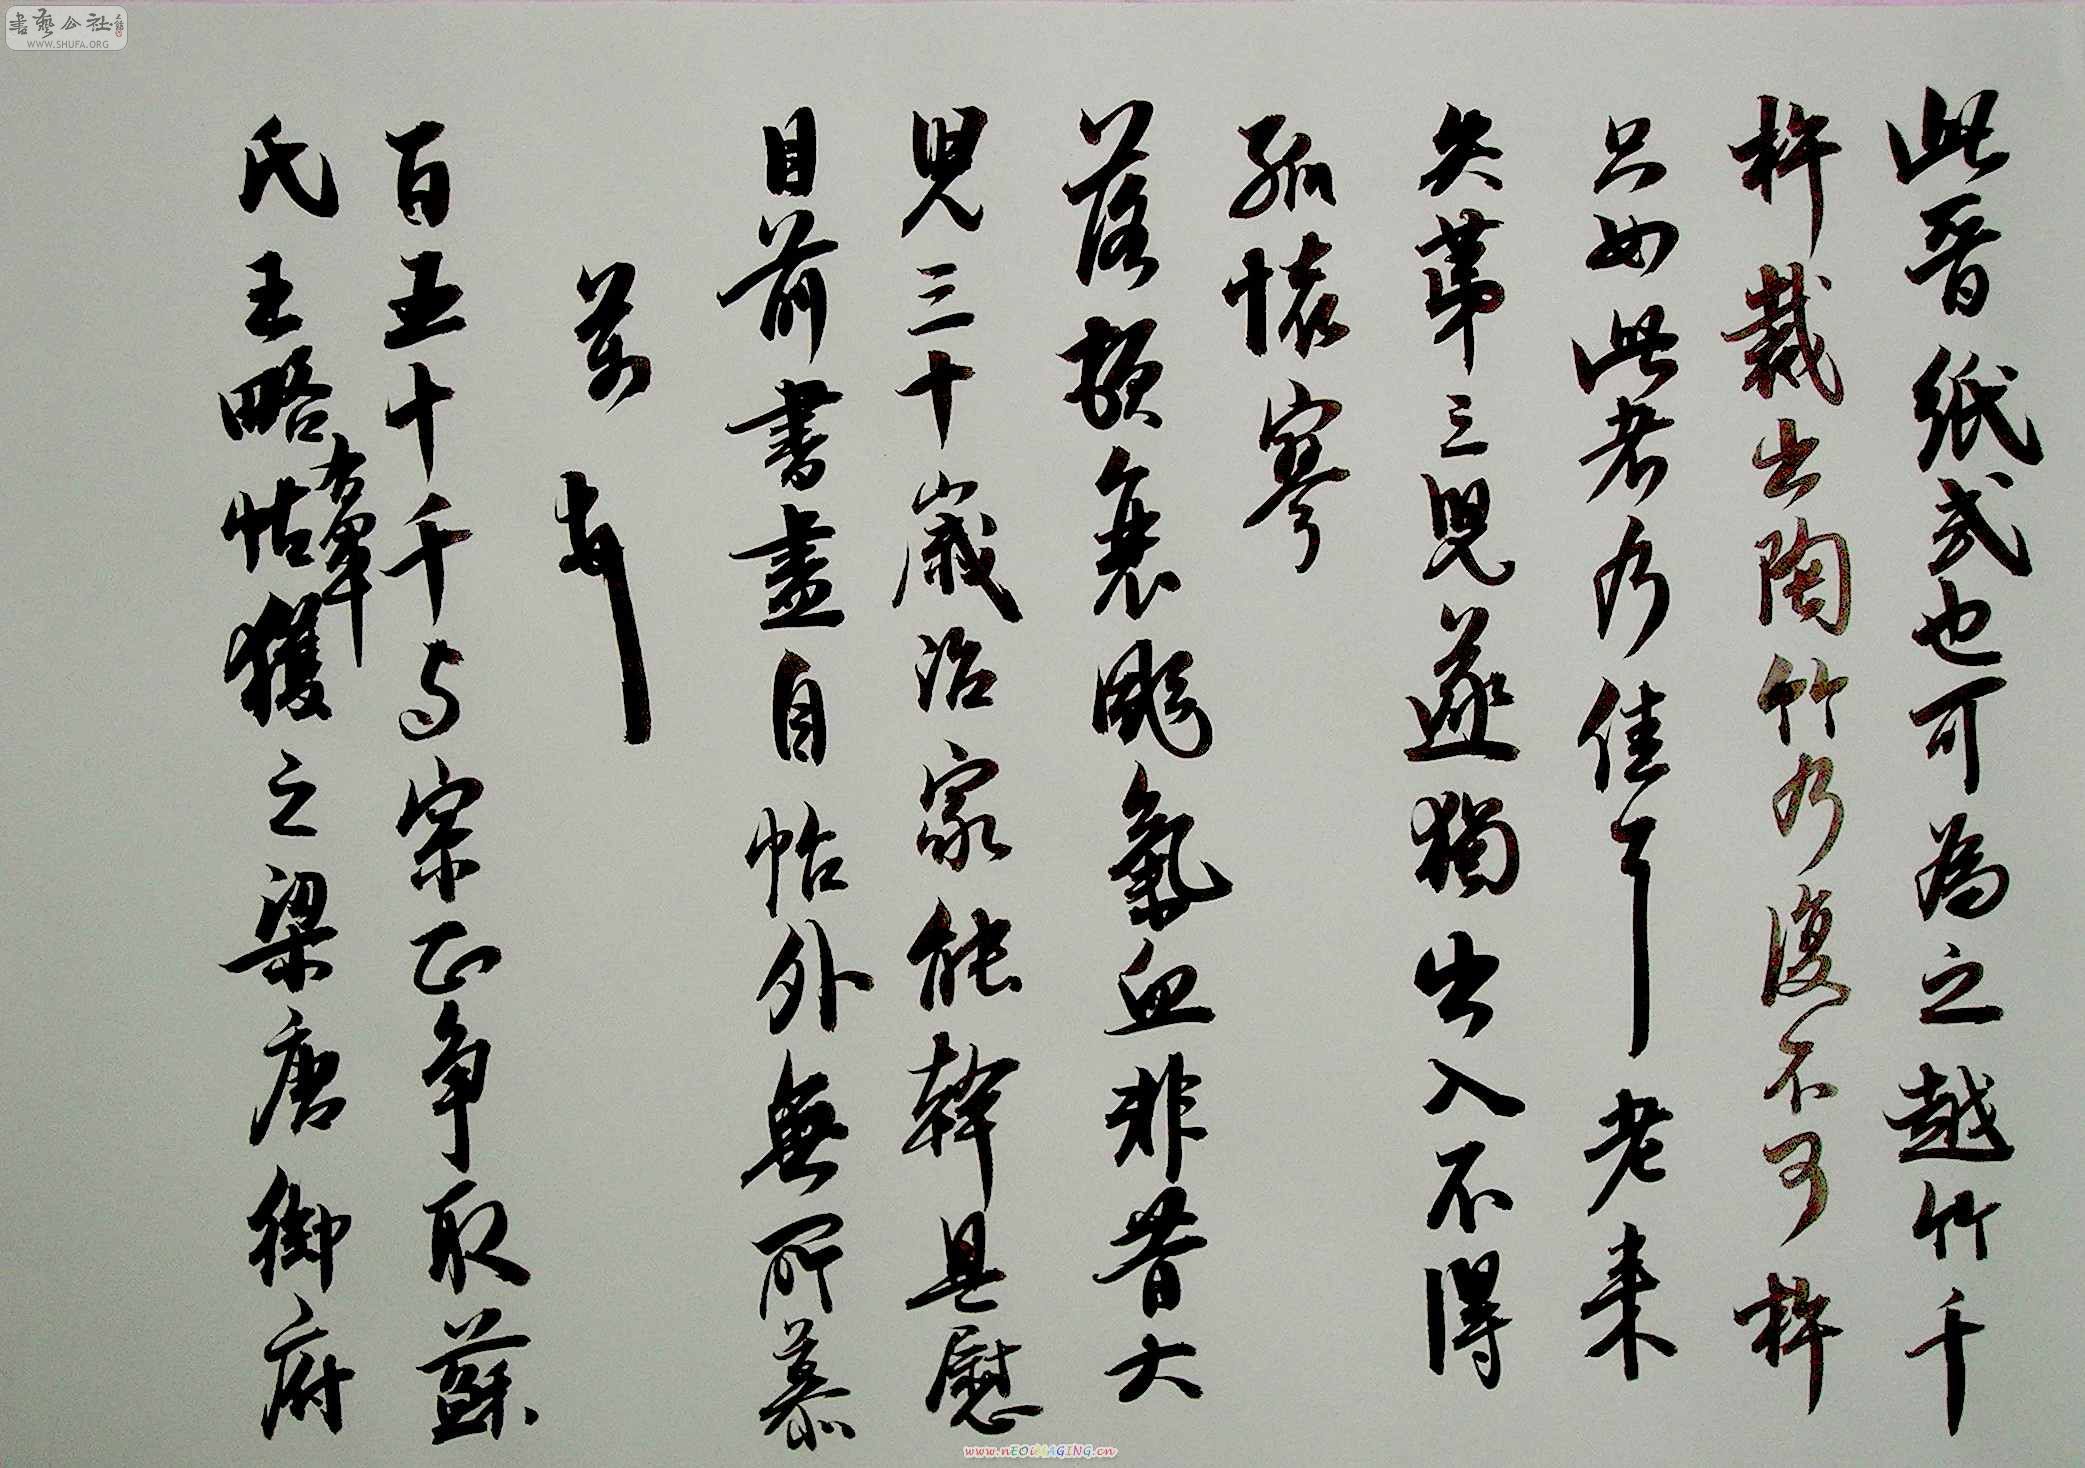 此晋紙式也可為之越竹千
杵裁出陶竹乃復不可杵
只如此者乃佳耳老来
失第三兒遂獨出入不得
孤懷寥
落頓衰颰氣血非昔大
兒三十歲治家能幹且慰
目前書畫自怡外無所慕
芾頓
百五十千与宗正争取蘇
氏王略帖右軍獲之梁唐御府
書藝公社
WWW.SHUFA.ORG
www.nEOiMAGING.cn